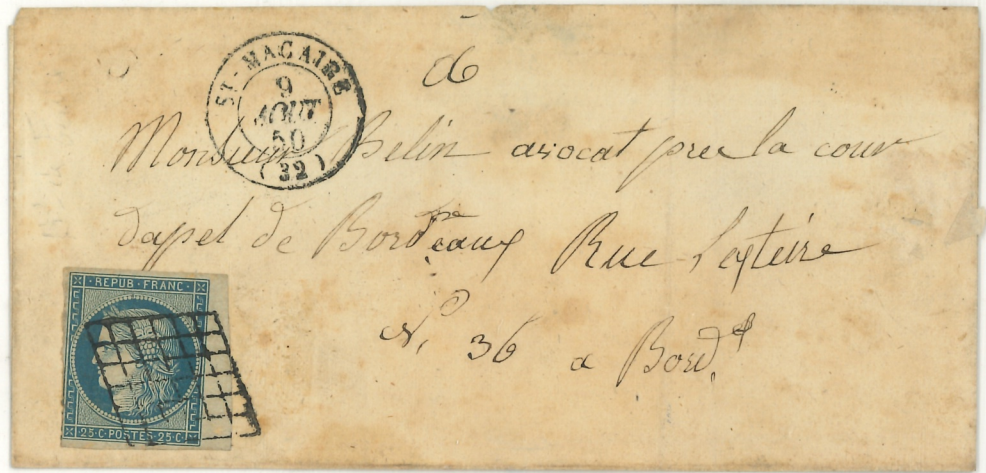 ST-MACAIRE
9
AOUT
50
(32)
Monsieur Belin avocat pres la cour
dapel de Bordeaux Rue
N. 36 a Bord.
REPUB·FRANC·
25·C·POSTES·25·C